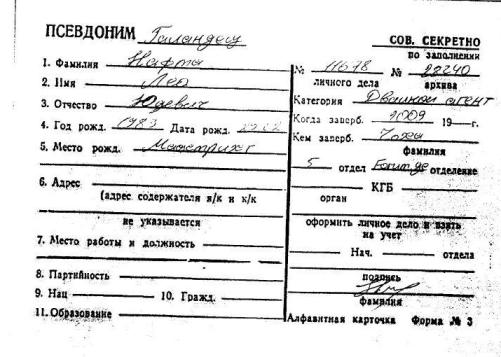 ПСЕВДОНИМ Голандец
1. Фамилия Нафта
2. Имя Лео
3. Отчество Юдевич
4. Год рожд. 1983 Дата рожд.
5. Место рожд. Маастрихт
6. Адрес
(адрес содержателя я/к и к/к
не указывается
7. Место работы и должность
8. Партийность
9. Нац 10. Гражд.
11. Образование
СОВ. СЕКРЕТНО
по заполнении
№ 11678 № 28240
личного дела архива
Категория Двойной агент
Когда заверб. 2009 19 г.
Кем заверб.
фамилия
5 отдел отделение
КГБ
орган
оформить личное дело и взять
на учет
Нач. отдела
подпись
фамилия
Алфавитная карточка Форма № 3